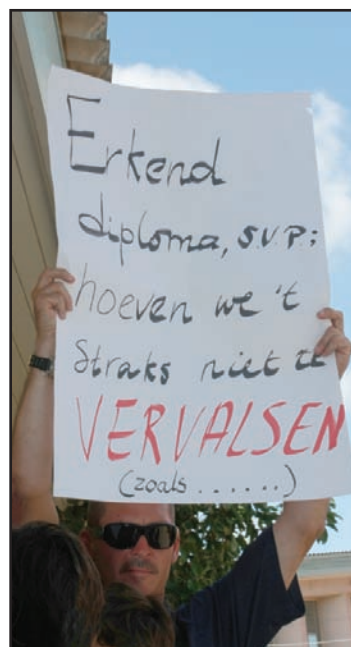 Erkend
diploma, s.v.p.;
hoeven we 't
straks niet te
VERVALSEN
(zoals ......)